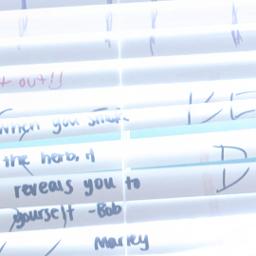 t out!!
when you smoke
KE
the herb, it
D
reveals you to
yourself -Bob
Marley